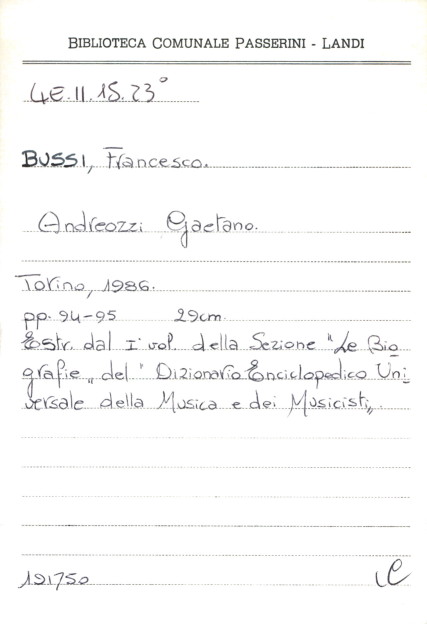 BIBLIOTECA COMUNALE PASSERINI - LANDI
4E.II.15.23°
BUSSI, Francesco.
Andreozzi Gaetano.
Torino, 1986.
pp. 94-95 29cm.
Estr. dal I° vol. della Sezione "Le Bio
grafie" del "Dizionario Enciclopedico Uni
versale della Musica e dei Musicisti".
191750